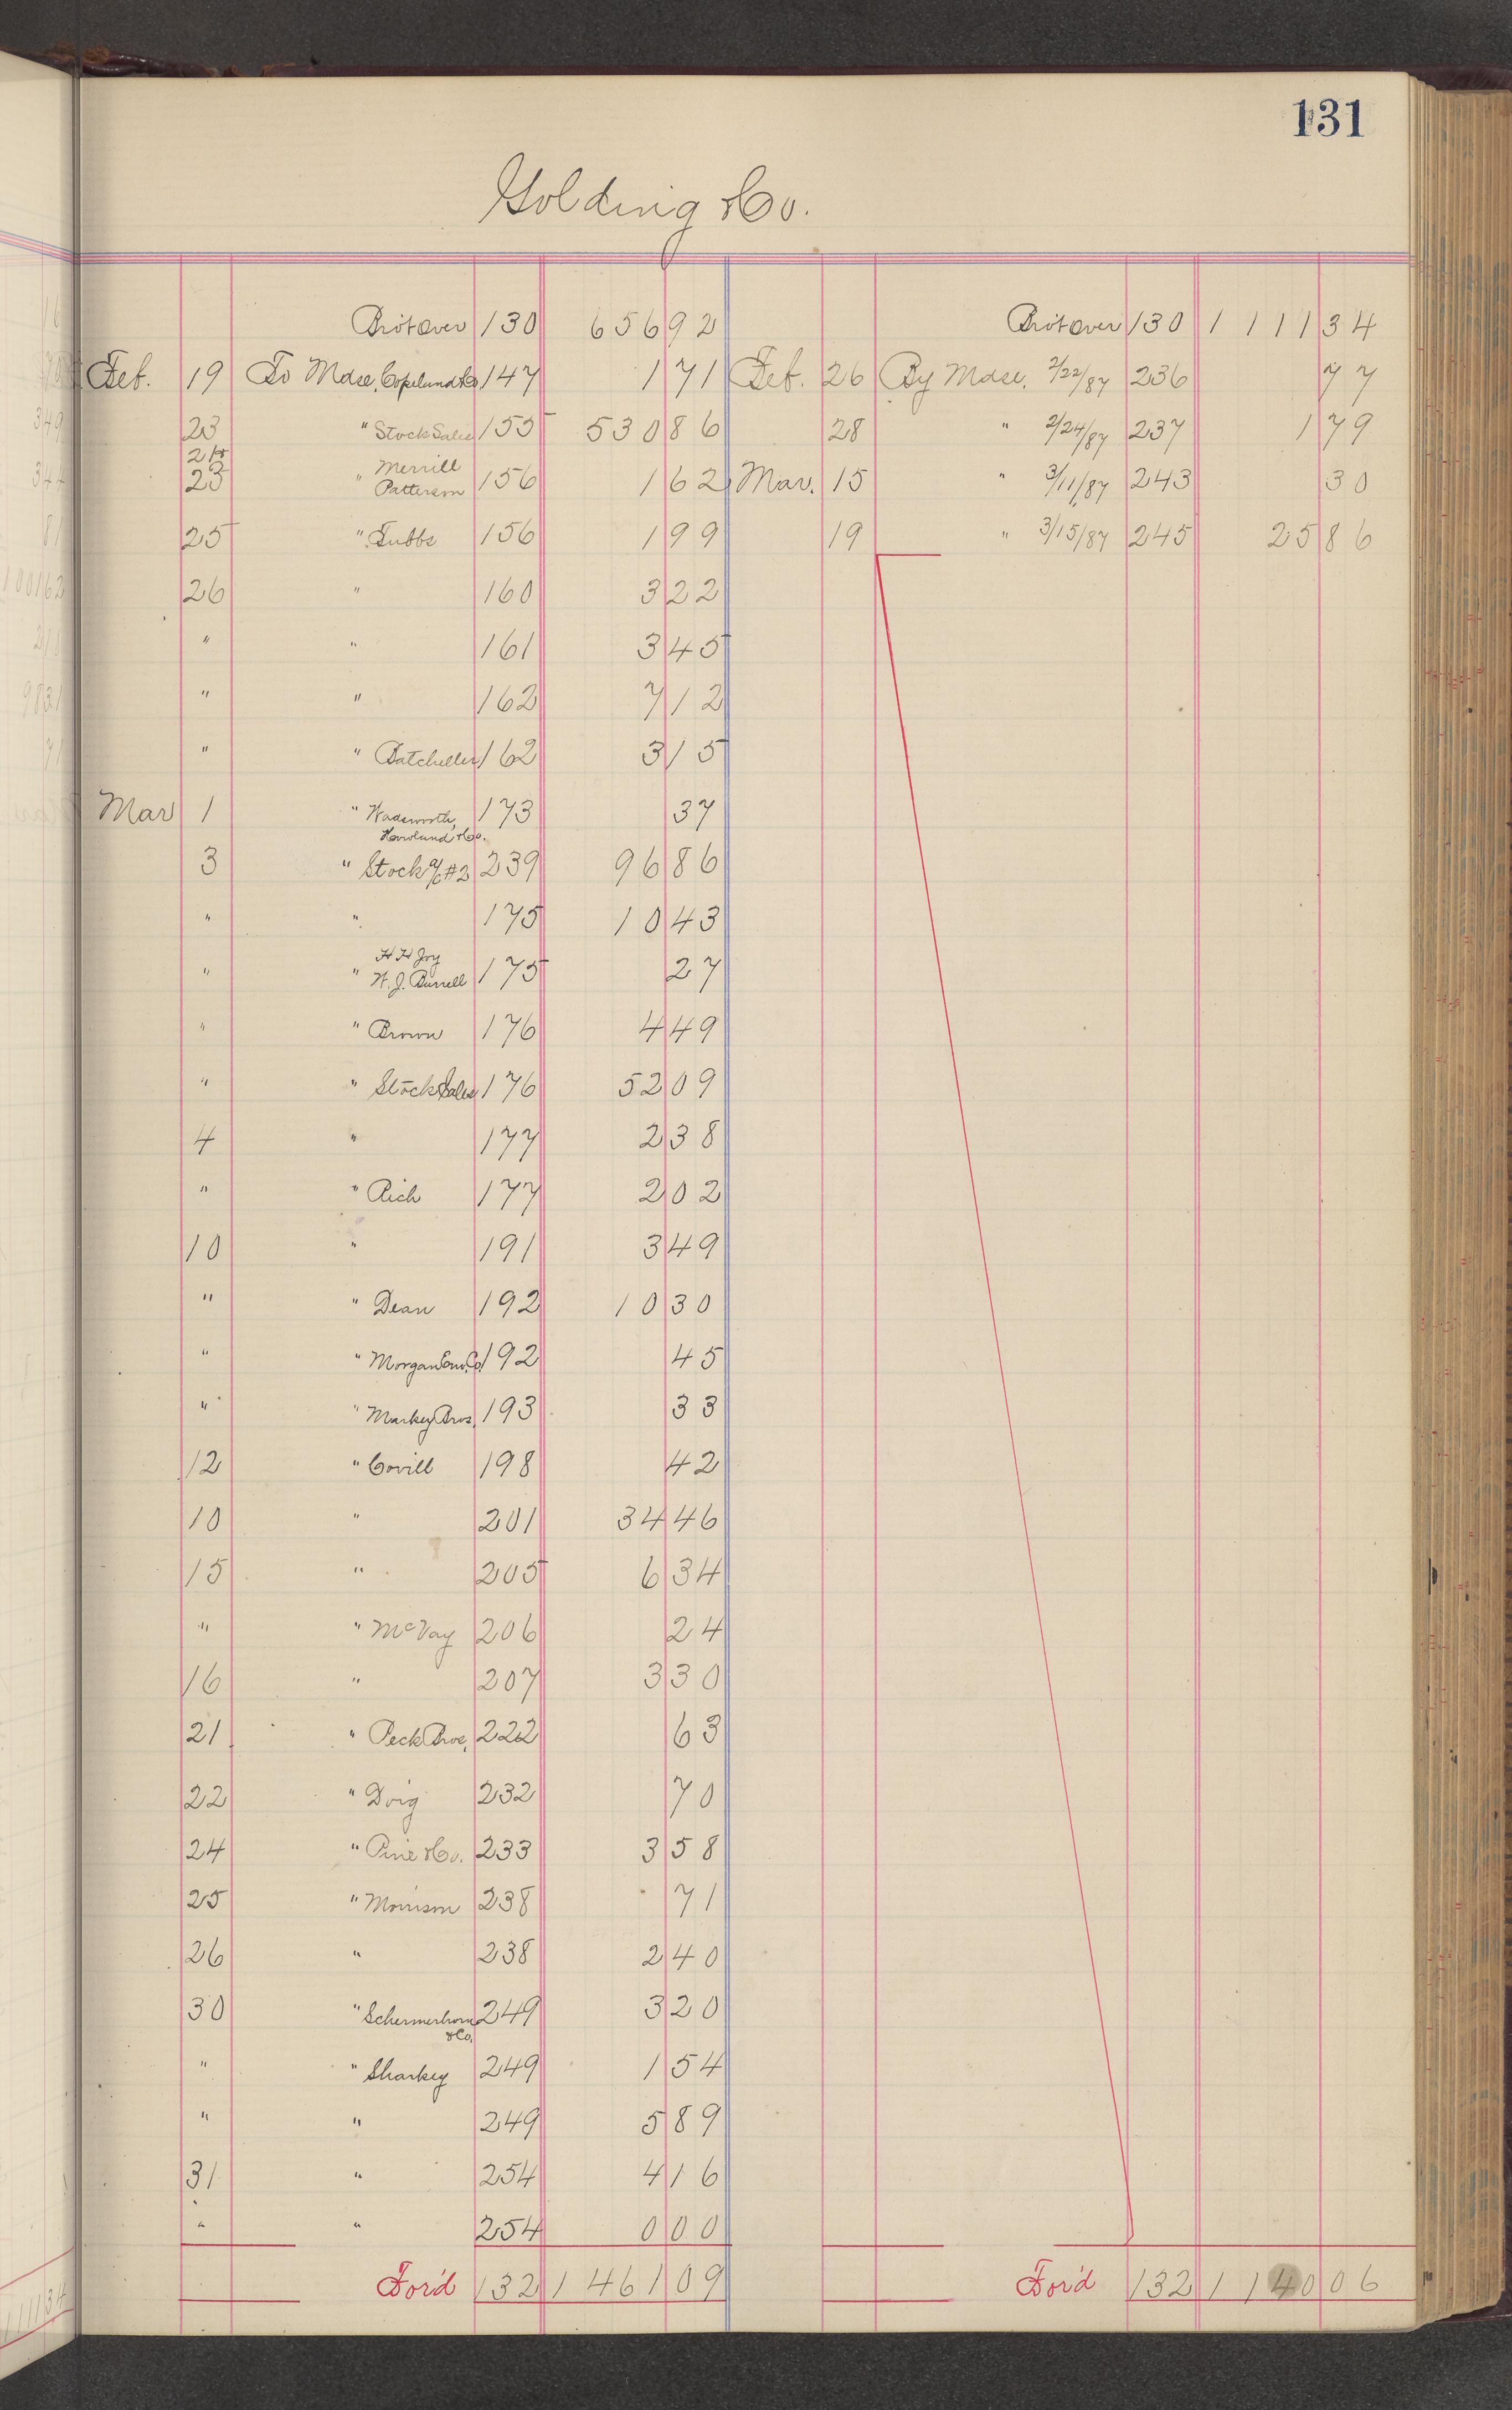 131
Golding & Co.
Bro't Over 130 656 92 Bro't Over 130 1 111 34
Feb. 19 To Mdse, Copeland & Co 147 1 71 Feb. 26 By Mdse. 2/22/87 236 77
23 " Stock Sales 155 530 86 28 " 2/24/87 237 1 79
24 Merrill
23 " Patterson 156 1 62 Mar. 15 " 3/11/87 243 30
25 " Tubbs 156 1 99 19 " 3/15/87 245 25 86
26 " 160 3 22
" " 161 3 45
" " 162 7 12
" " Batcheller 162 3 15
Mar 1 " Wadsworth, 173 37
Howland & Co.
3 " Stock a/c #2 239 96 86
" " 175 10 43
H H Joy
" " W. J. Burrell 175 27
" " Brown 176 4 49
" " Stock Sales 176 52 09
4 " 177 2 38
" " Rich 177 2 02
10 " 191 3 49
" " Dean 192 10 30
" " Morgan Env. Co. 192 45
" " Markey Bros. 193 33
12 " Covill 198 42
10 " 201 34 46
15 " 205 6 34
" " McVay 206 24
16 " 207 3 30
21 " Peck Bros. 222 63
22 " Doig 232 70
24 " Pine & Co. 233 3 58
25 " Morrison 238 71
26 " 238 2 40
30 " Schermerhorn 249 3 20
& Co.
" " Sharkey 249 1 54
" " 249 5 89
31 " 254 4 16
" " 254 0 00
For'd 132 1 461 09 For'd 132 1 140 06